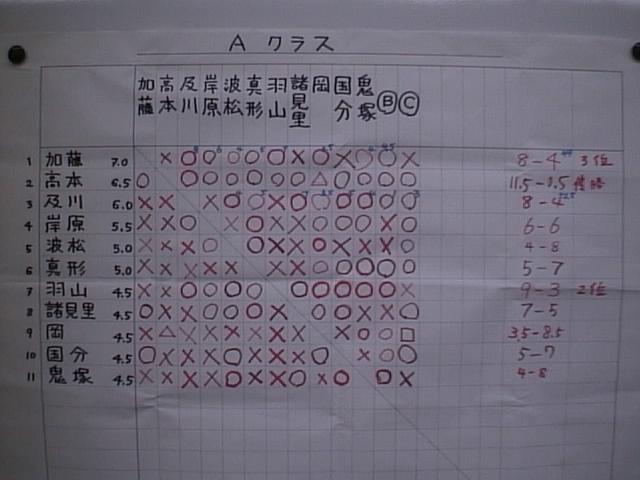 A クラス
加藤 高本 及川 岸原 波松 真形 羽山 諸見里 岡 国分 鬼塚 Ⓑ Ⓒ
1 加藤 7.0 × ○ ○ ○ ○ ○ × ○ × ○ ○ × 8-4 3位
2 高本 6.5 ○ ○ ○ ○ ○ ○ ○ △ ○ ○ ○ ○ 11.5-0.5 優勝
3 及川 6.0 × × × ○ ○ × ○ ○ ○ ○ ○ ○ 8-4
4 岸原 5.5 × × ○ × ○ × × ○ ○ ○ × ○ 6-6
5 波松 5.0 × × × ○ ○ × × ○ × × × ○ 4-8
6 真形 5.0 × × × × × × × ○ ○ ○ ○ ○ 5-7
7 羽山 4.5 × × ○ ○ ○ ○ ○ ○ ○ ○ ○ × 9-3 2位
8 諸見里 4.5 ○ × × ○ ○ ○ × ○ ○ ○ × ○ 7-5
9 岡 4.5 × △ × × × × × × × ○ ○ □ 3.5-8.5
10 国分 4.5 ○ × × × ○ × × × ○ × ○ ○ 5-7
11 鬼塚 4.5 × × × × ○ × × ○ × ○ ○ × 4-8